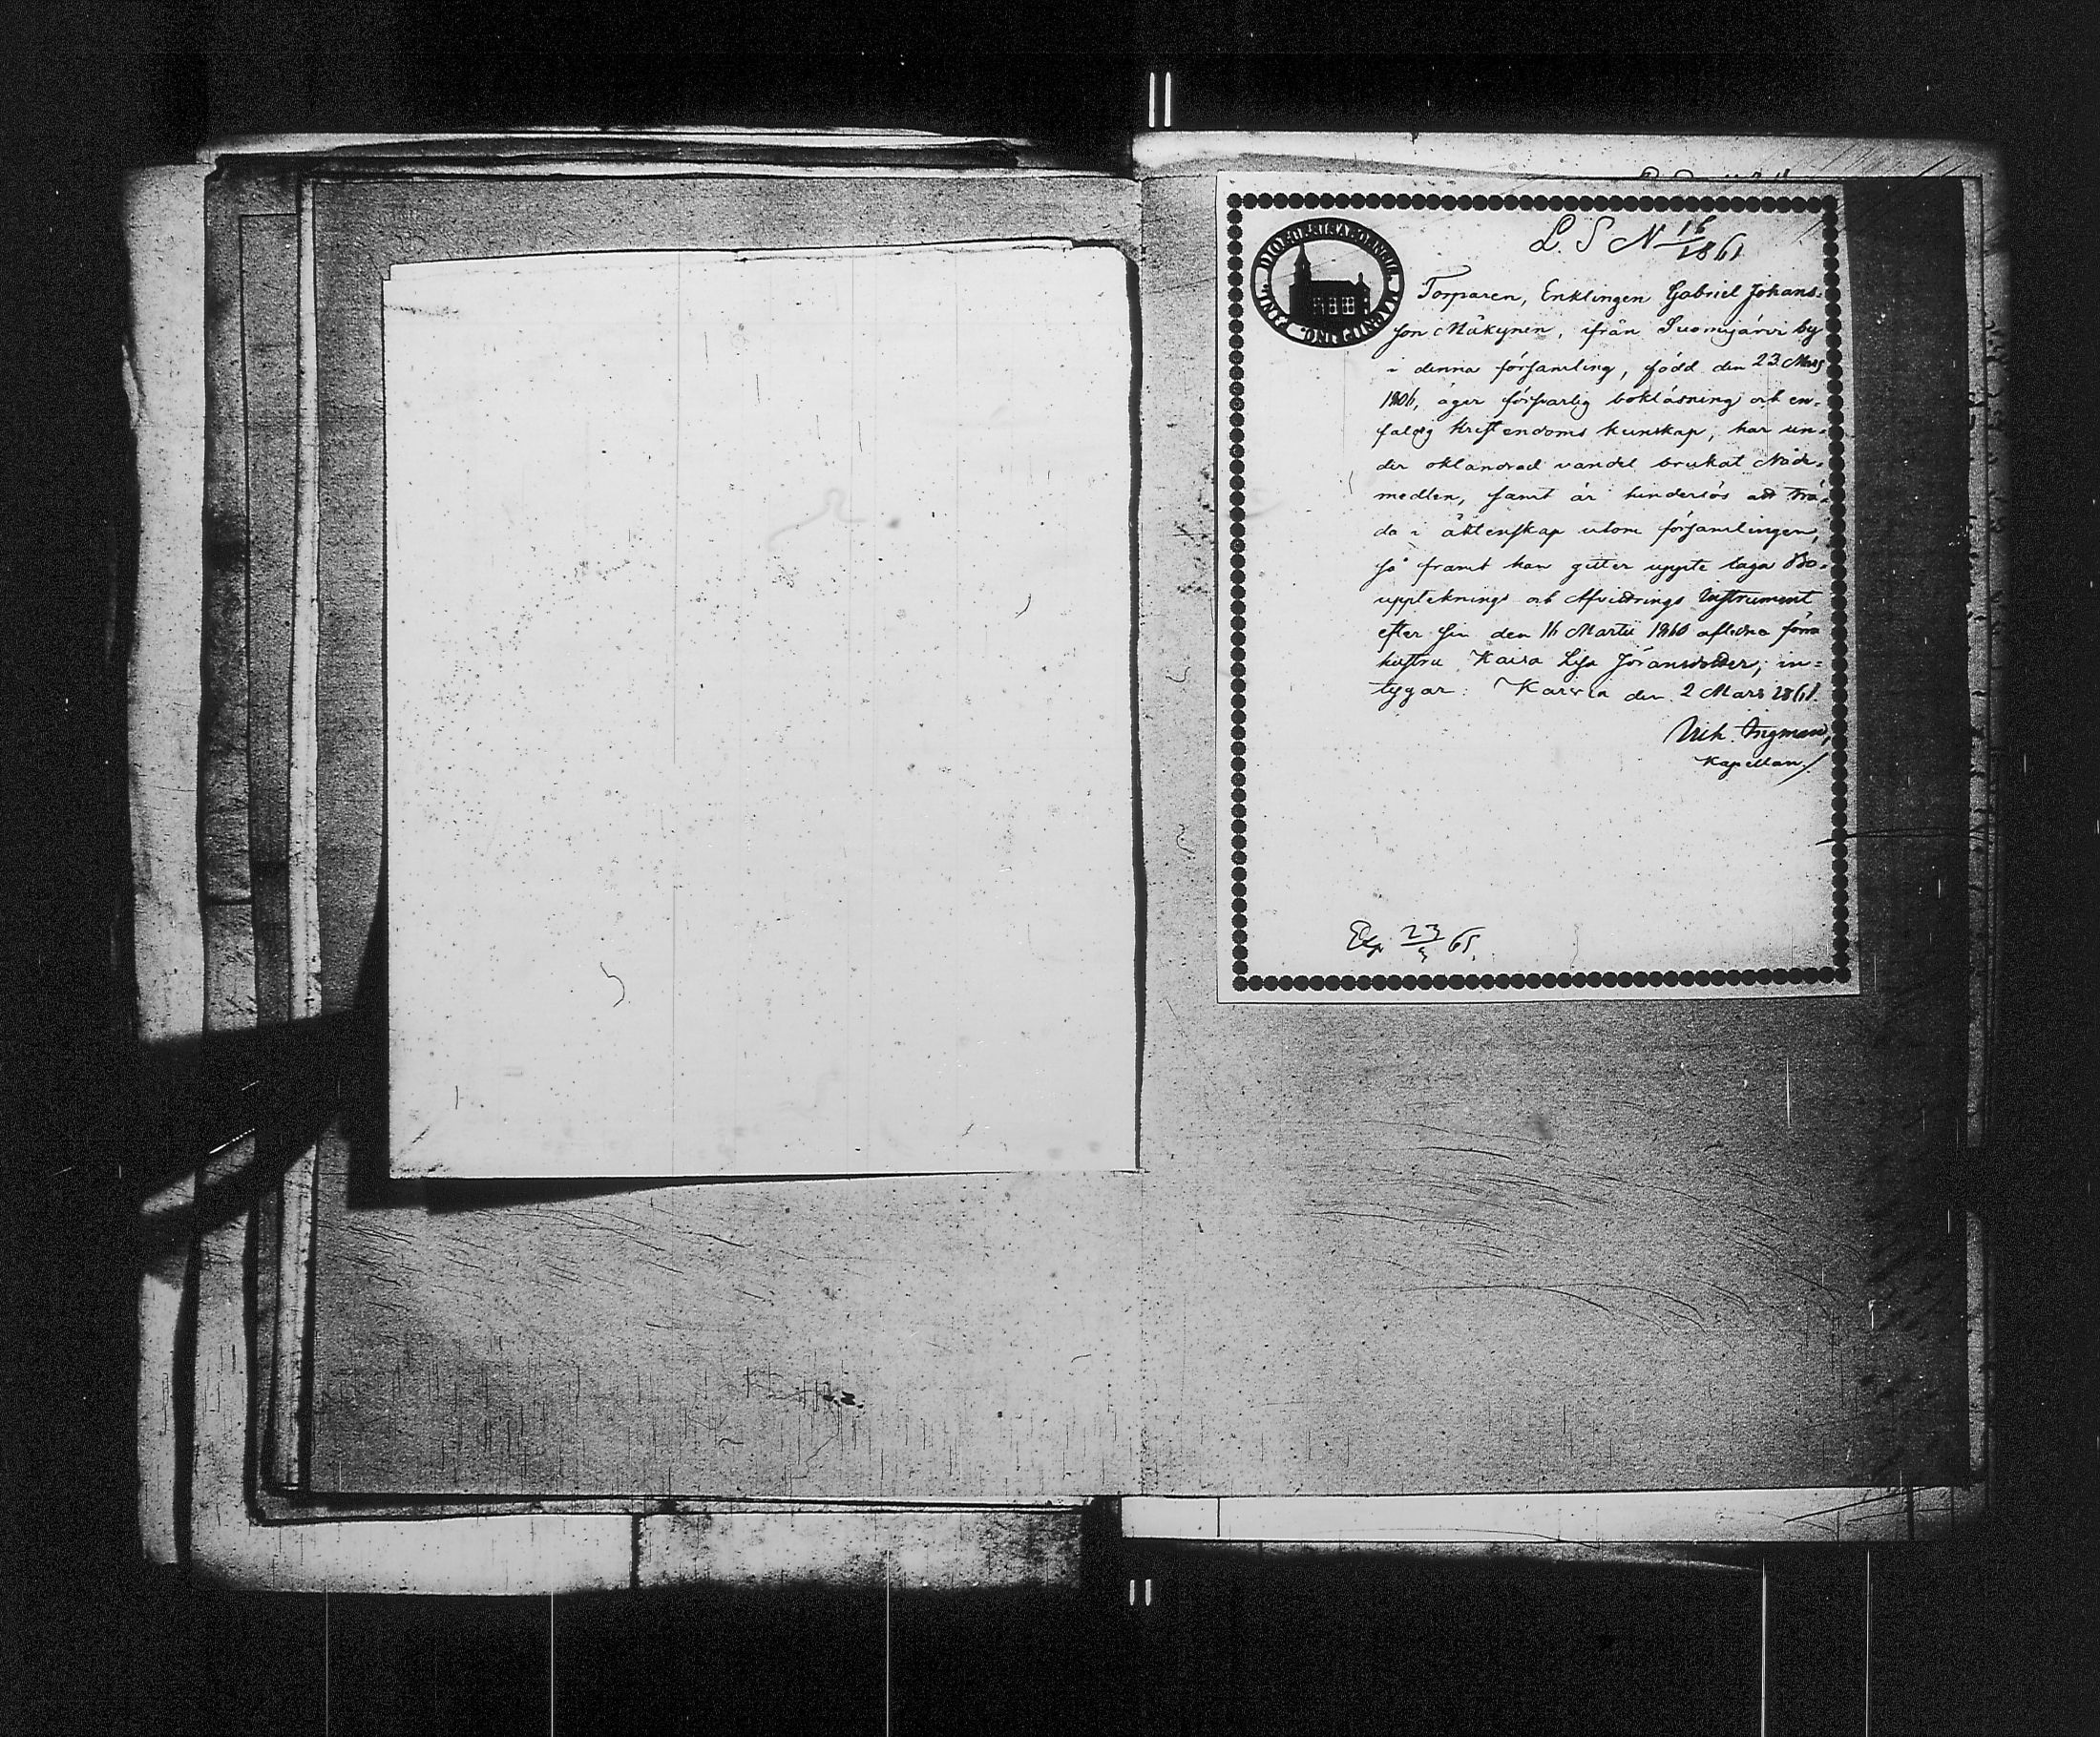 L. S N 16/1861
Torparen, Enklingen Gabriel Johans-
son Mäkynen, ifrån Suomijärvi by
i denna församling, född den 23 Mars
1806, äger försvarlig bokläsning och en-
faldig Kristendoms kunskap, har un-
der oklandrad vandel brukat Nåde-
medlen, samt är hinderlös att trä-
da i äktenskap utom församlingen,
så framt han gitter uppte laga Bo-
upptecknings och Afvittrings Instrument
efter sin den 16 Martii 1860 aflidna förra
hustru Kaisa Lisa Jöransdotter; in-
tygar: Karvia den 2 Mars 1861.
Ingman,
Kapellan.
Exp. 23/3 61.